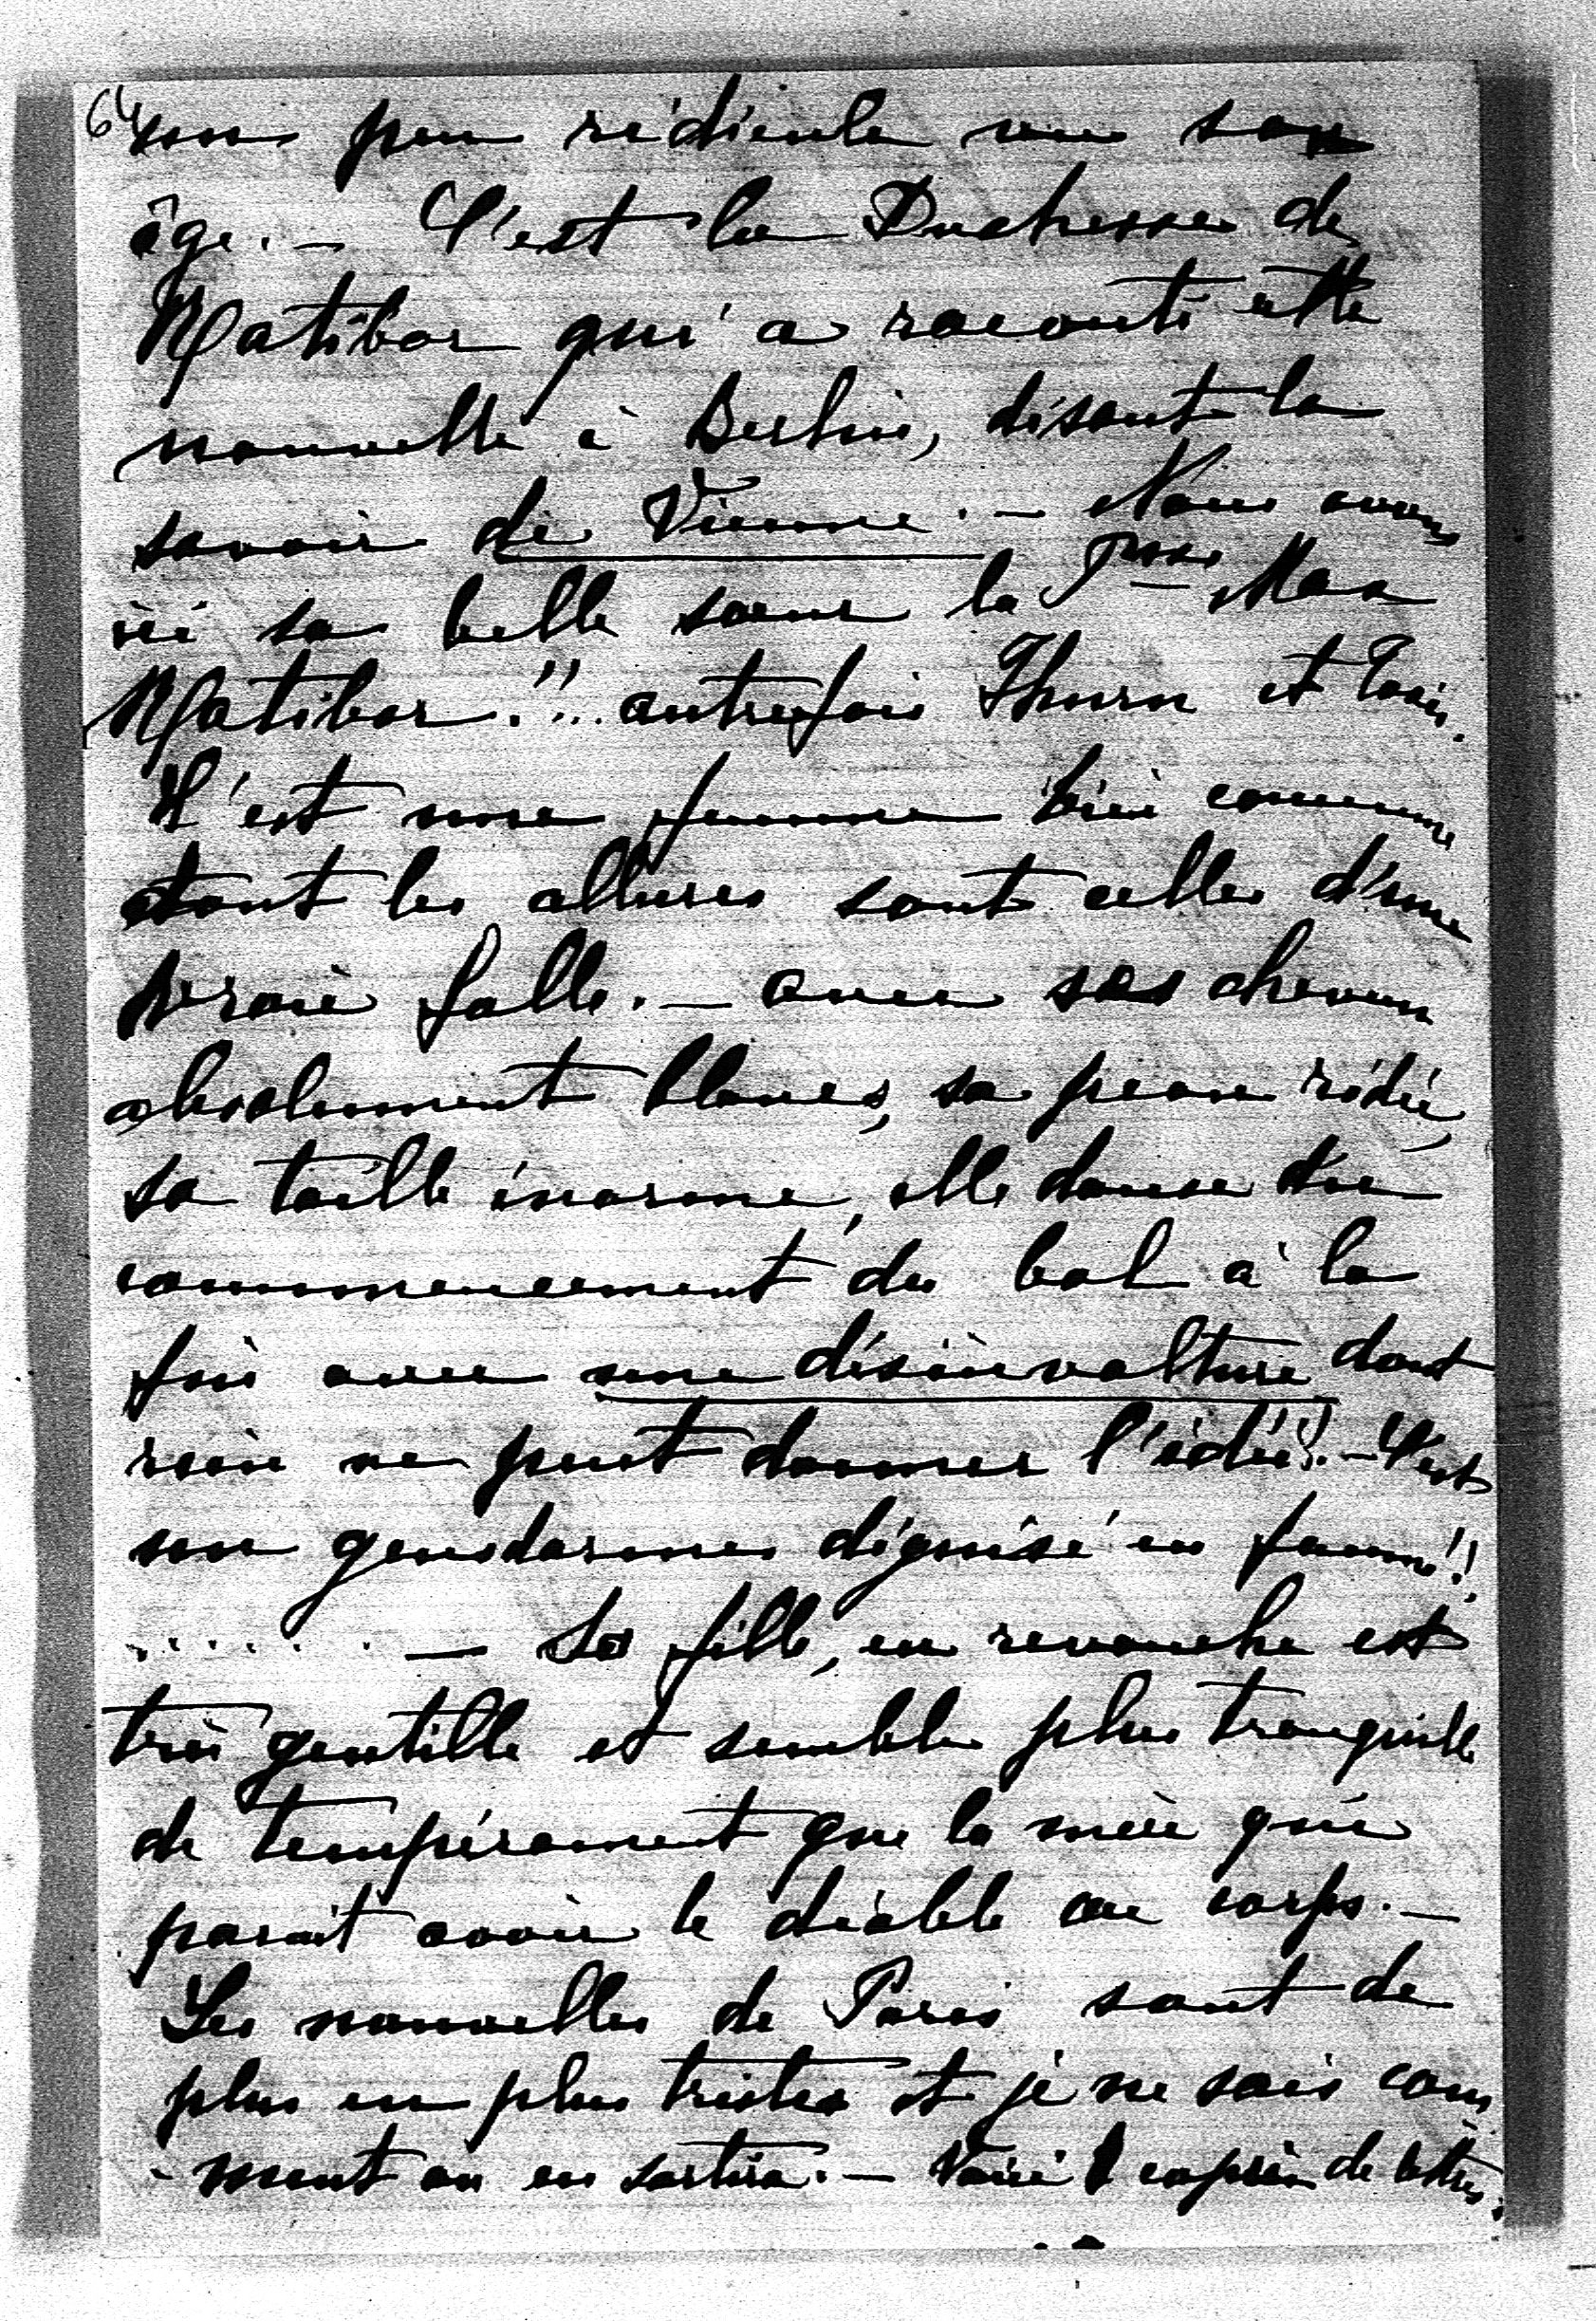 64
un peu ridicule vu son
âge. — C'est la Duchesse de
Ratibor qui a raconté cette
nouvelle à Berlin, disant la
savoir de Vienne. — Nous avons
ici sa belle soeur la Psse Max
Ratibor."... autrefois Thurn et Taxis.
C'est une femme bien commune
dont les allures sont celles d'une
vraie folle. — avec ses cheveux
absolument blancs, sa peau ridée,
sa taille énorme, elle danse du
commencement du bal à la
fin avec une désinvolture dont
rien ne peut donner l'idée!. — C'est
un gendarme déguisé en femme!!
...... — Sa fille, en revanche est
très gentille et semble plus tranquille
de tempérament que la mère qui
parait avoir le diable au corps. —
Les nouvelles de Paris sont de
plus en plus tristes et je ne sais com
- ment on en sortira. — Voici copies de lettres.